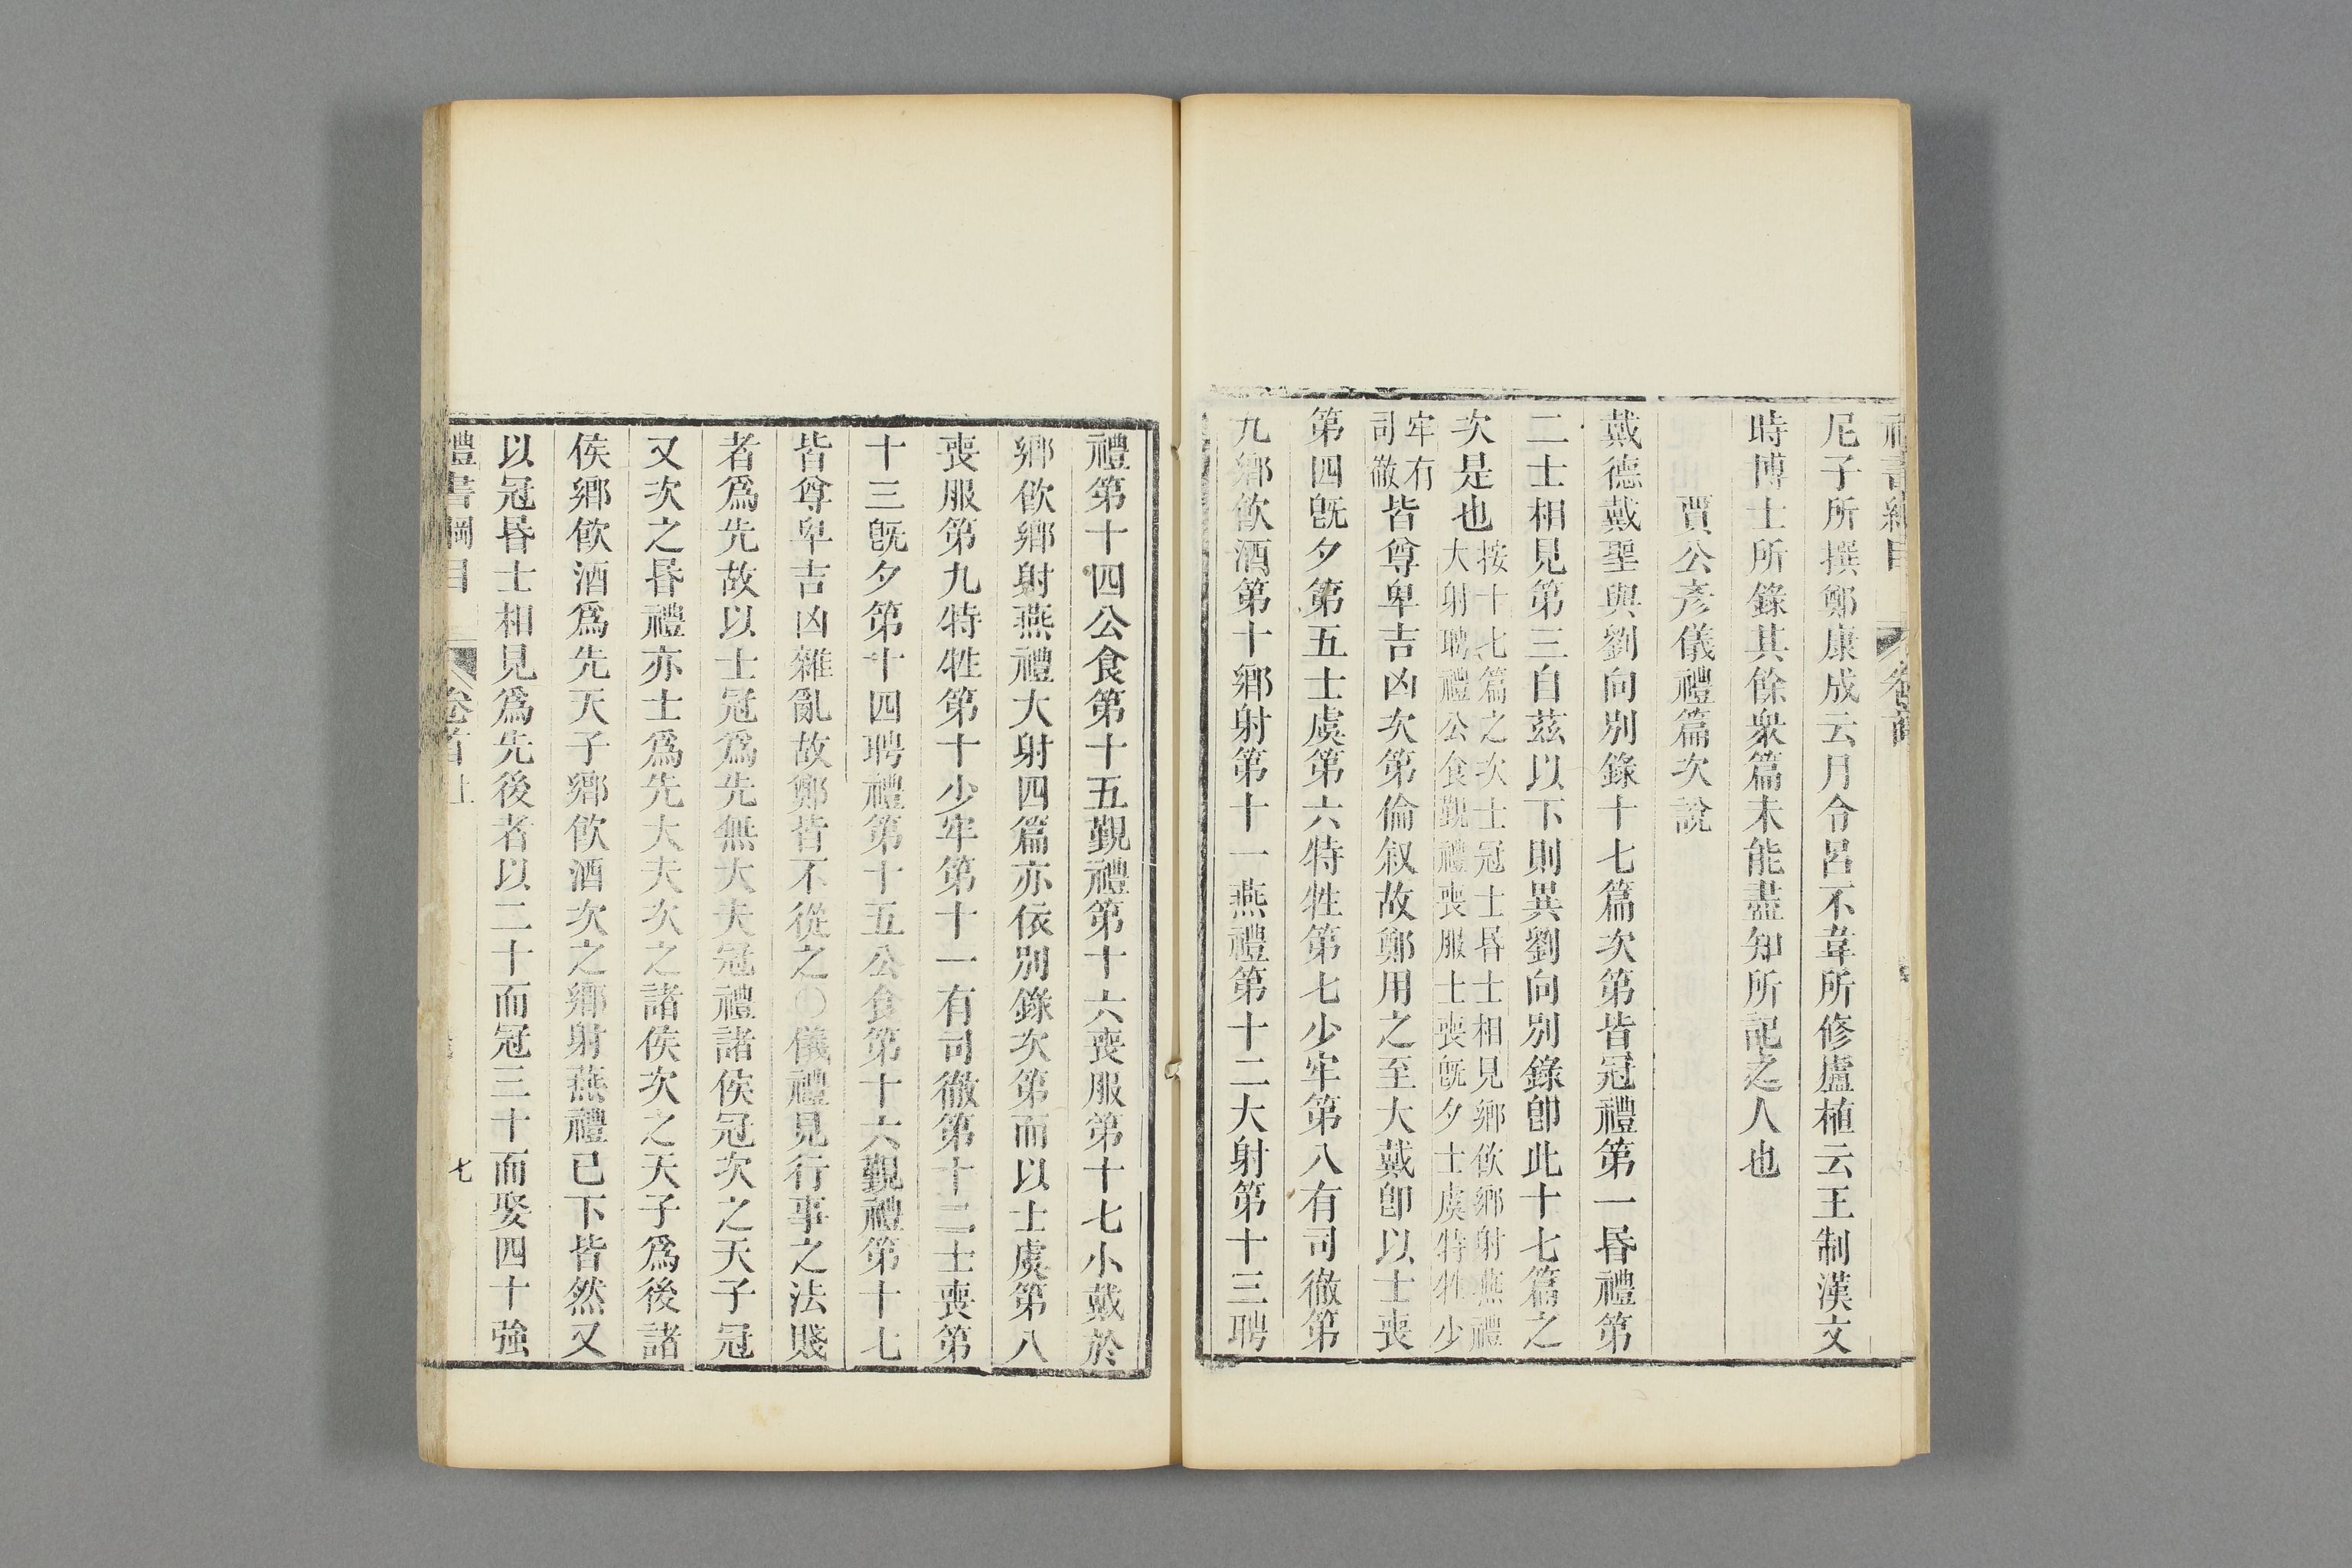 尼子所撰鄭康成云月令呂不韋所修盧植云王制漢文
時博士所錄其餘衆篇未能盡知所記之人也
賈公彥儀禮篇次說
戴德戴聖與劉向別錄十七篇次第皆冠禮第一昏禮第
二士相見第三自茲以下則異劉向別錄卽此十七篇之
次是也按十七篇之次士冠士昏士相見鄉飲鄉射燕禮
大射聘禮公食覲禮喪服士喪旣夕士虞特牲少
牢有
司徹皆尊卑吉凶次第倫叙故鄭用之至大戴卽以士喪
第四旣夕第五士虞第六特牲第七少牢第八有司徹第
九鄉飲酒第十鄉射第十一燕禮第十二大射第十三聘
禮第十四公食第十五覲禮第十六喪服第十七小戴於
鄉飲鄉射燕禮大射四篇亦依別錄次第而以士虞第八
喪服第九特牲第十少牢第十一有司徹第十二士喪第
十三旣夕第十四聘禮第十五公食第十六覲禮第十七
皆尊卑吉凶雜亂故鄭皆不從之〇儀禮見行事之法賤
者爲先故以士冠爲先無大夫冠禮諸侯冠次之天子冠
又次之昏禮亦士爲先大夫次之諸侯次之天子爲後諸
侯鄉飲酒爲先天子鄉飲酒次之鄉射燕禮已下皆然又
以冠昏士相見爲先後者以二十而冠三十而娶四十強
禮書綱目 卷首上 七